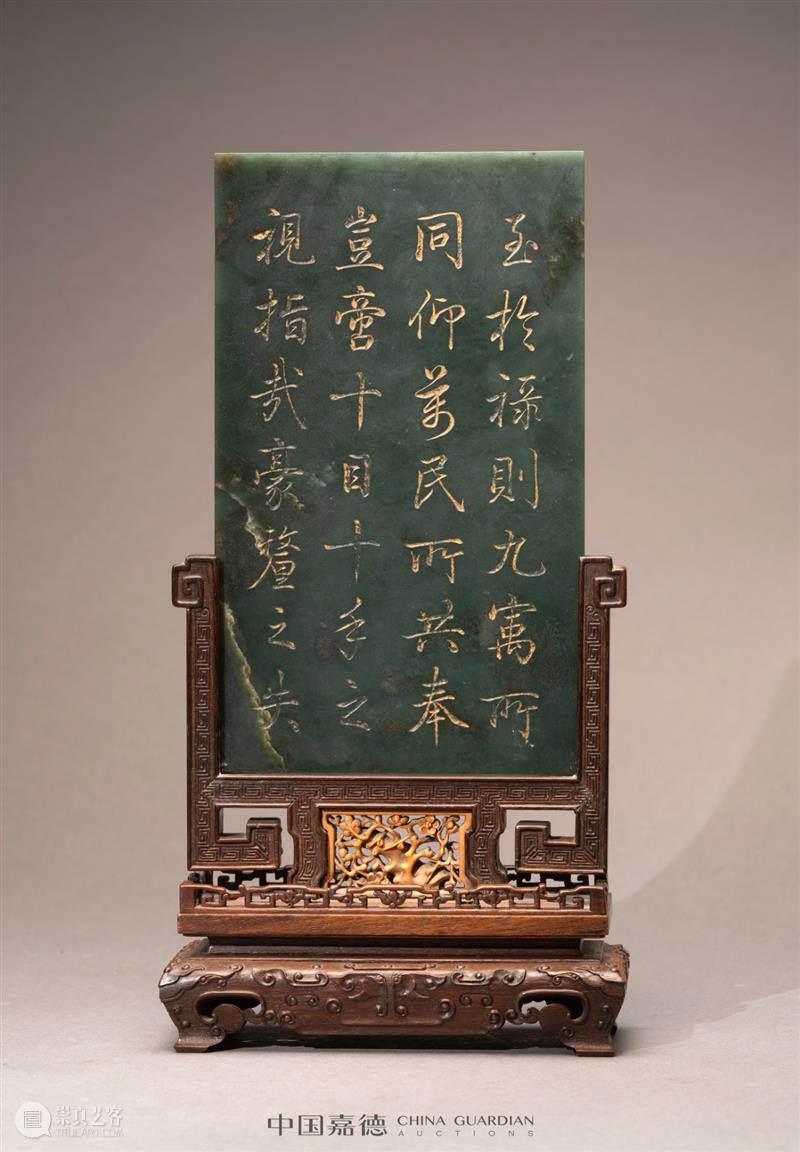 至於禄則九寓所
同仰萬民所共奉
豈啻十目十手之
視指哉豪釐之失
崇真艺客
TRUEART.COM
中国嘉德 CHINA GUARDIAN
AUCTIONS